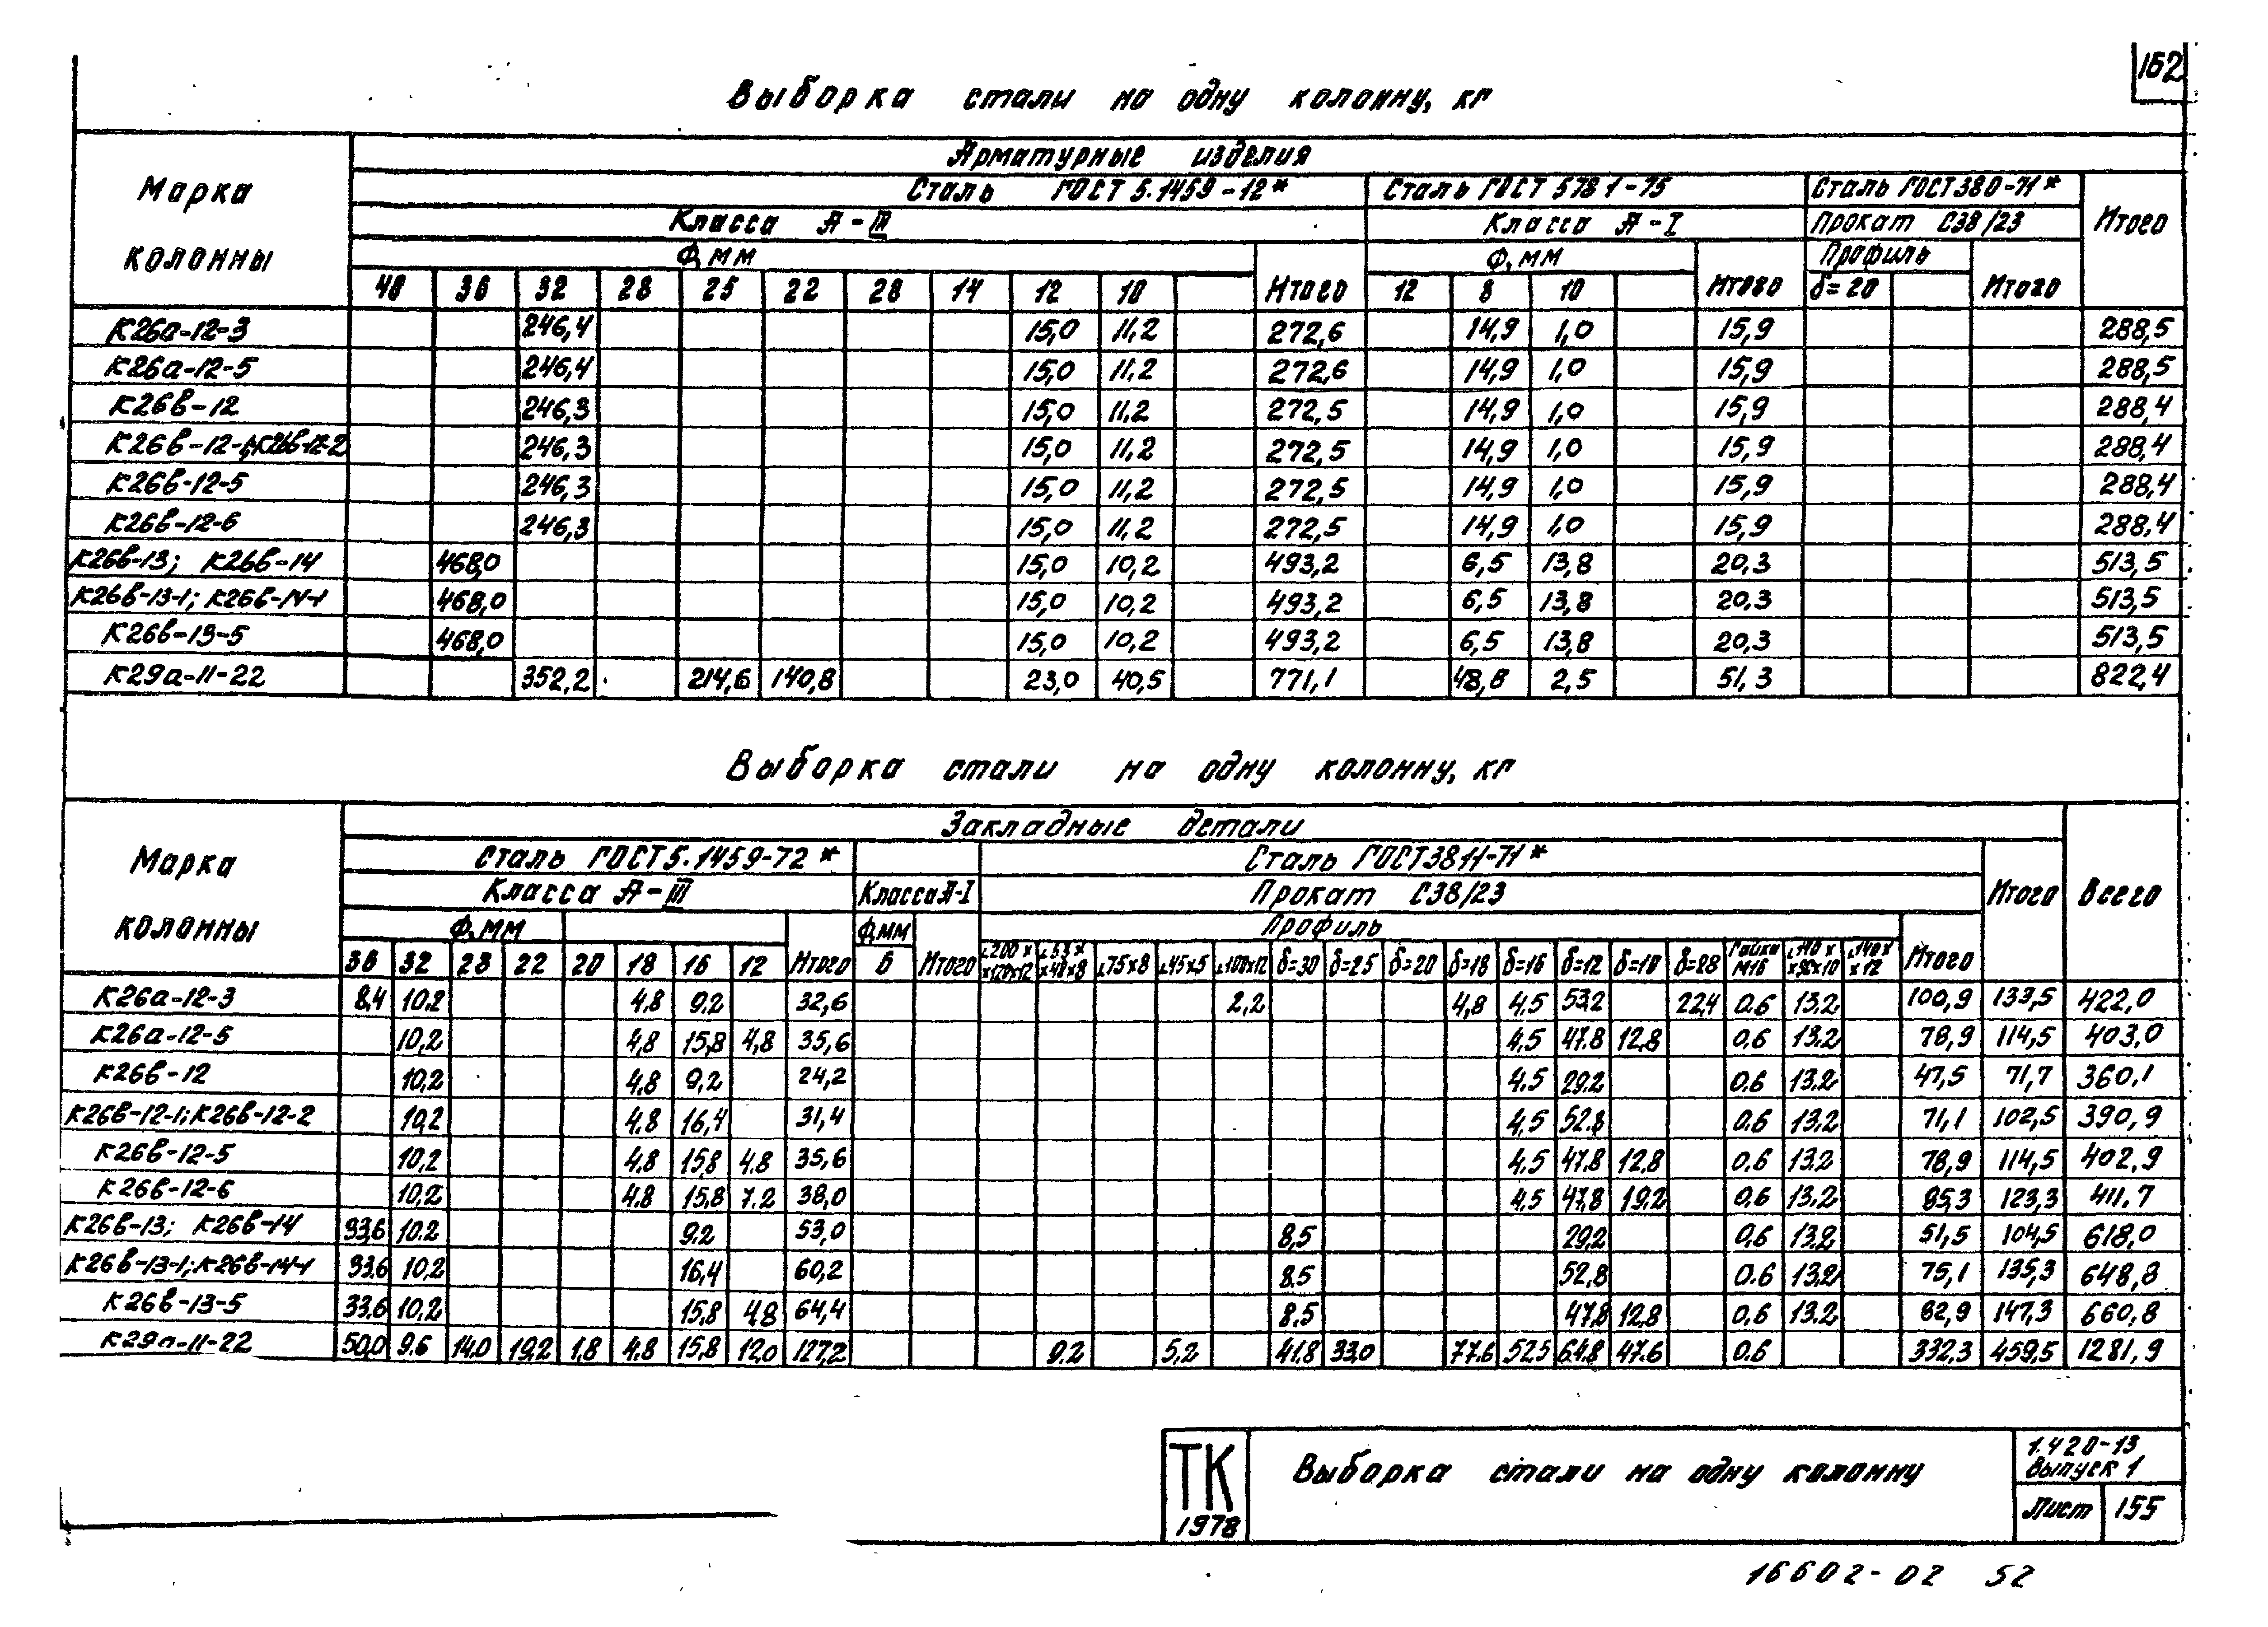 162
Выборка стали на одну колонну, кг
Марка колонны
Арматурные изделия
Сталь ГОСТ 5.1459-12* Сталь ГОСТ 5781-75 Сталь ГОСТ 380-71* Итого
Класса А-III Класса А-I Прокат С38/23
Ф, мм Ф, мм Профиль
40 36 32 28 25 22 20 14 12 10 Итого 12 8 10 Итого δ=20 Итого
К26а-12-3 246,4 15,0 11,2 272,6 14,9 1,0 15,9 288,5
К26а-12-5 246,4 15,0 11,2 272,6 14,9 1,0 15,9 288,5
К26в-12 246,3 15,0 11,2 272,5 14,9 1,0 15,9 288,4
К26в-12-1; К26в-12-2 246,3 15,0 11,2 272,5 14,9 1,0 15,9 288,4
К26в-12-5 246,3 15,0 11,2 272,5 14,9 1,0 15,9 288,4
К26в-12-6 246,3 15,0 11,2 272,5 14,9 1,0 15,9 288,4
К26в-13; К26в-14 468,0 15,0 10,2 493,2 6,5 13,8 20,3 513,5
К26в-13-1; К26в-14-1 468,0 15,0 10,2 493,2 6,5 13,8 20,3 513,5
К26в-13-5 468,0 15,0 10,2 493,2 6,5 13,8 20,3 513,5
К29а-11-22 352,2 214,6 140,8 23,0 40,5 771,1 48,8 2,5 51,3 822,4
Выборка стали на одну колонну, кг
Марка колонны
Закладные детали
Сталь ГОСТ 5.1459-72* Сталь ГОСТ 3811-71*
Класса А-III Класса А-I Прокат С38/23 Итого Всего
Ф, мм Ф, мм Профиль
36 32 28 22 20 18 16 12 Итого 6 Итого ∟200××120×12 ∟75×8 ∟45×5 ∟100×12 δ=30 δ=25 δ=20 δ=18 δ=16 δ=12 δ=10 δ=28 Гайка М16 ∟140××90×10 ∟140××12 Итого
К26а-12-3 8,4 10,2 4,8 9,2 32,6 2,2 4,8 4,5 53,2 22,4 0,6 13,2 100,9 133,5 422,0
К26а-12-5 10,2 4,8 15,8 4,8 35,6 4,5 47,8 12,8 0,6 13,2 78,9 114,5 403,0
К26в-12 10,2 4,8 9,2 24,2 4,5 29,2 0,6 13,2 47,5 71,7 360,1
К26в-12-1; К26в-12-2 10,2 4,8 16,4 31,4 4,5 52,8 0,6 13,2 71,1 102,5 390,9
К26в-12-5 10,2 4,8 15,8 4,8 35,6 4,5 47,8 12,8 0,6 13,2 78,9 114,5 402,9
К26в-12-6 10,2 4,8 15,8 7,2 38,0 4,5 47,8 19,2 0,6 13,2 85,3 123,3 411,7
К26в-13; К26в-14 33,6 10,2 9,2 53,0 8,5 29,2 0,6 13,2 51,5 104,5 618,0
К26в-13-1; К26в-14-1 33,6 10,2 16,4 60,2 8,5 52,8 0,6 13,2 75,1 135,3 648,8
К26в-13-5 33,6 10,2 15,8 4,8 64,4 8,5 47,8 12,8 0,6 13,2 82,9 147,3 660,8
К29а-11-22 50,0 9,6 14,0 19,2 1,8 4,8 15,8 12,0 127,2 9,2 5,2 41,8 33,0 77,6 52,5 64,8 47,6 0,6 332,3 459,5 1281,9
ТК
1978
Выборка стали на одну колонну
1.420-13
Выпуск 1
Лист 155
16602-02 52